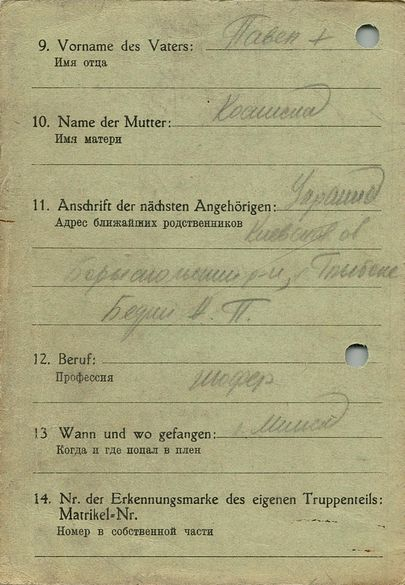 9. Vorname des Vaters: Павел +
Имя отца
10. Name der Mutter:
Имя матери
11. Anschrift der nächsten Angehörigen: Украина
Адрес ближайших родственников Киевская об
Бориспольский р-н,
А. П.
12. Beruf:
Профессия шофер
13 Wann und wo gefangen: Минск
Когда и где попал в плен
14. Nr. der Erkennungsmarke des eigenen Truppenteils:
Matrikel=Nr.
Номер в собственной части